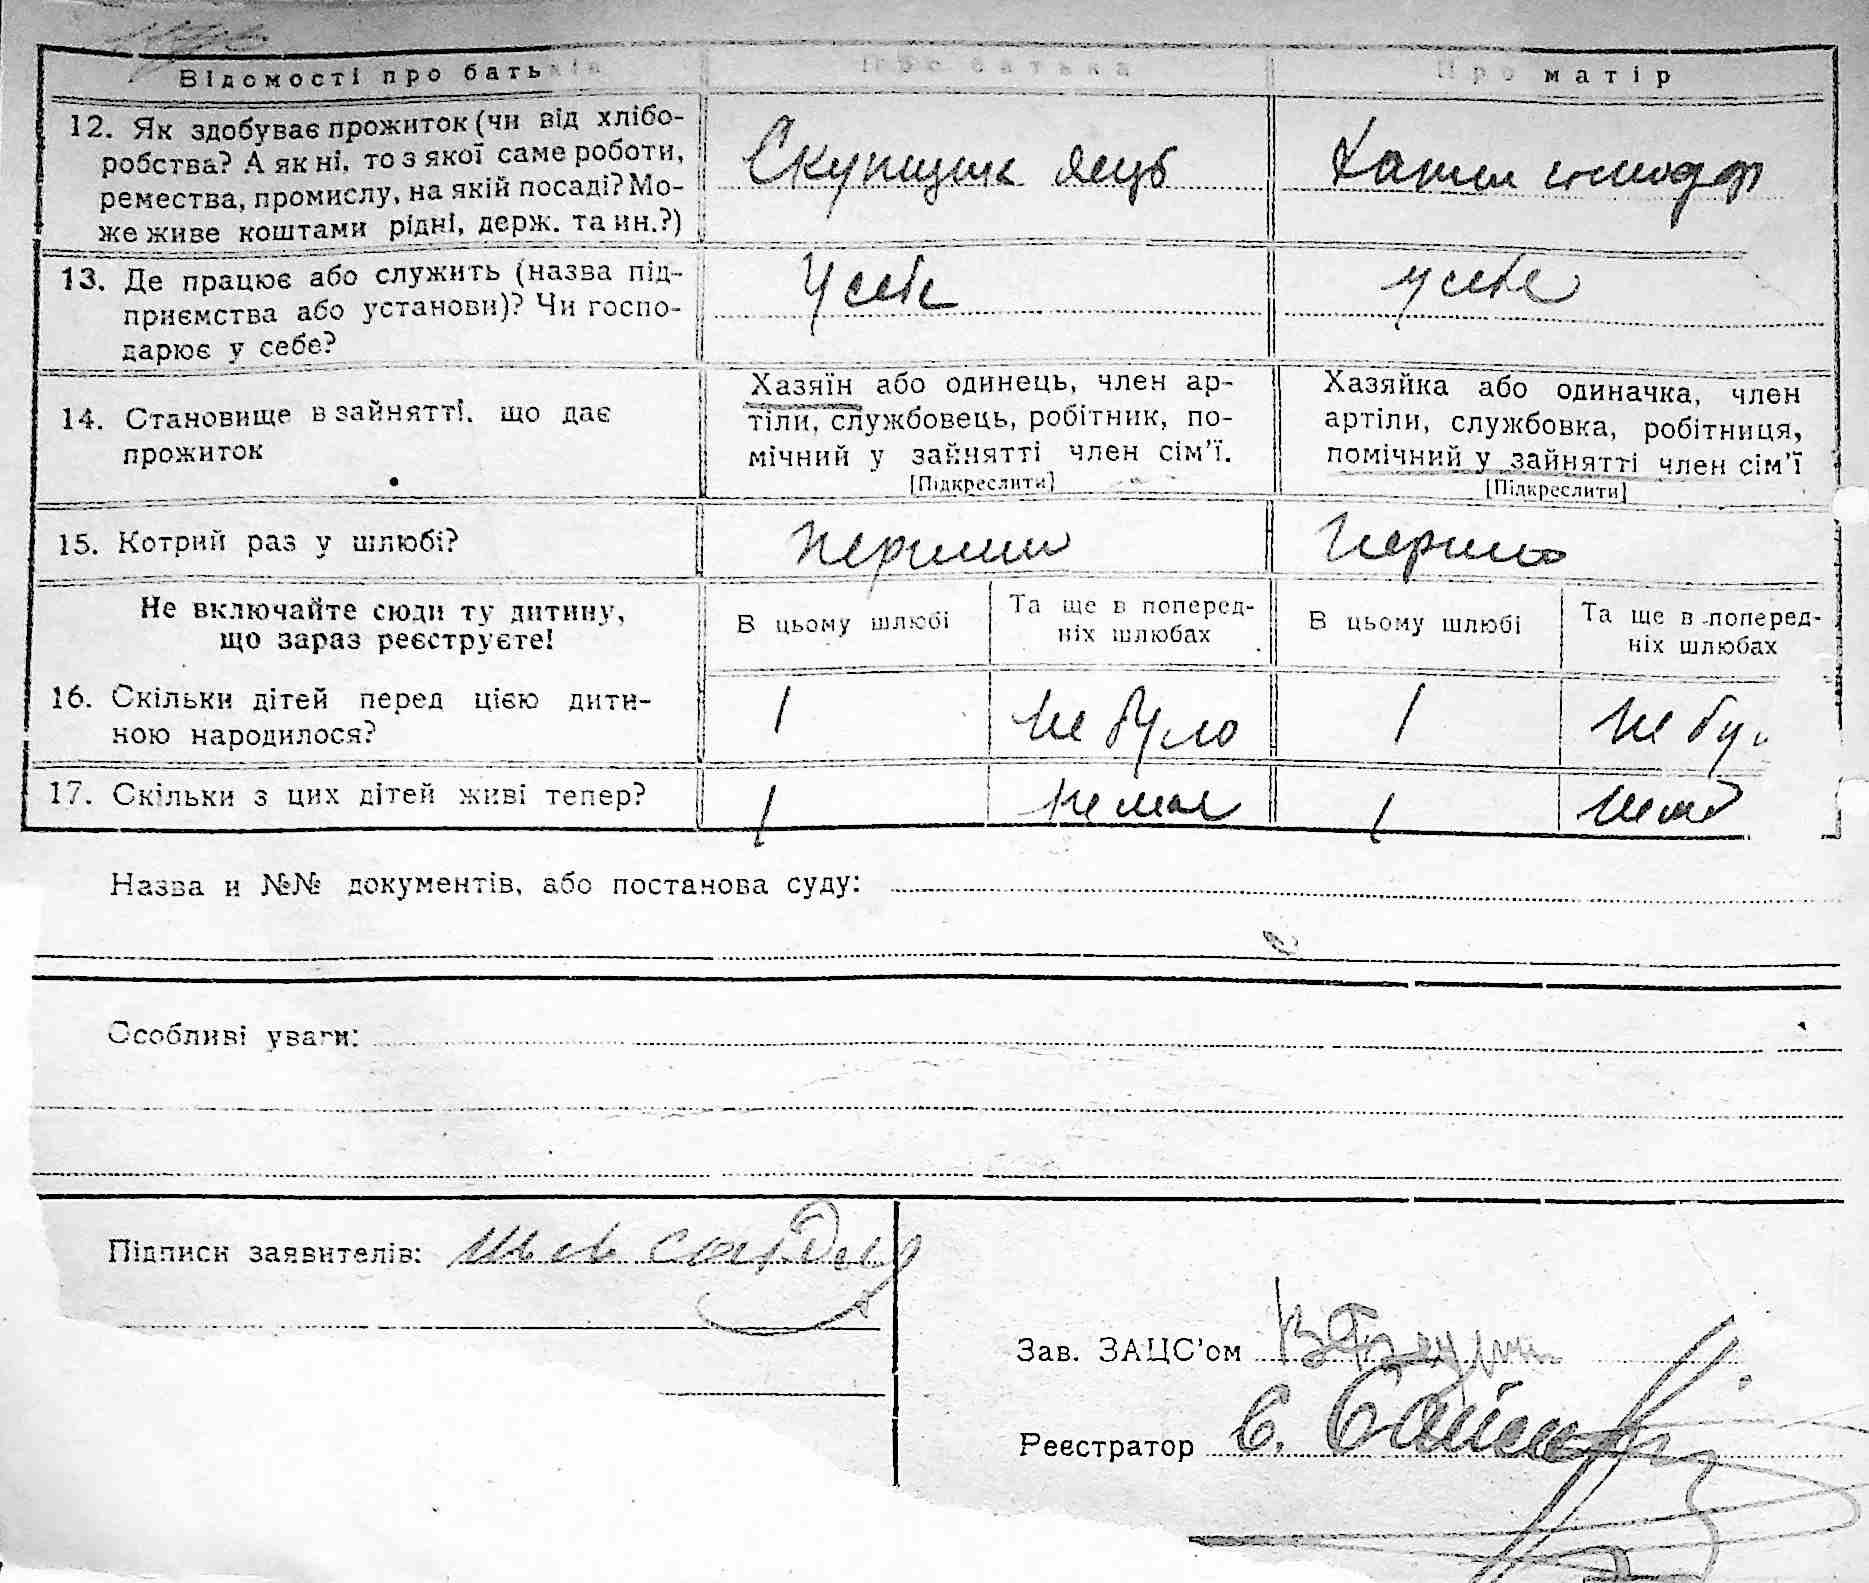 Відомості про батьків Про батька Про матір
12. Як здобуває прожиток (чи від хлібо-
робства? А як ні, то з якої саме роботи,
ремества, промислу, на якій посаді? Мо-
же живе коштами рідні, держ. та ин.?)
Скупщик яєць
13. Де працює або служить (назва під-
приємства або установи)? Чи госпо-
дарює у себе?
У себе у себе
14. Становище в зайнятті, що дає
прожиток
Хазяїн або одинець, член ар-
тіли, службовець, робітник, по-
мічний у зайнятті член сім'ї.
[Підкреслити]
Хазяйка або одиначка, член
артіли, службовка, робітниця,
помічний у зайнятті член сім'ї
[Підкреслити]
15. Котрий раз у шлюбі?
перший
Не включайте сюди ту дитину,
що зараз реєструєте!
В цьому шлюбі
Та ще в поперед-
ніх шлюбах
В цьому шлюбі
Та ще в поперед-
ніх шлюбах
16. Скільки дітей перед цією дити-
ною народилося?
1 не було 1 не бу
17. Скільки з цих дітей живі тепер?
1 немає 1
Назва и №№ документів, або постанова суду:
Особливі уваги:
Підписи заявителів:
Зав. ЗАЦС'ом
Реєстратор